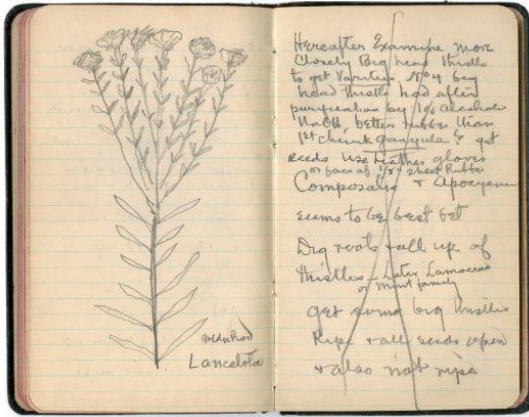 Golden Rod
Lancelota
Hereafter Examine more
Closely Big head thistle
to get Varieties No 4 big
head thistle had after
purification by 10% Alcoholic
NaOH better rubber than
1st chunk Guayule & get
seeds Use Leather gloves
or face of 1/8" sheet Rubber
Compositae + Apocynum
seems to be best bet
Dig roots + all up of
thistles —
or mint family
get some big thistles
Ripe + all seeds open
+ also not ripe